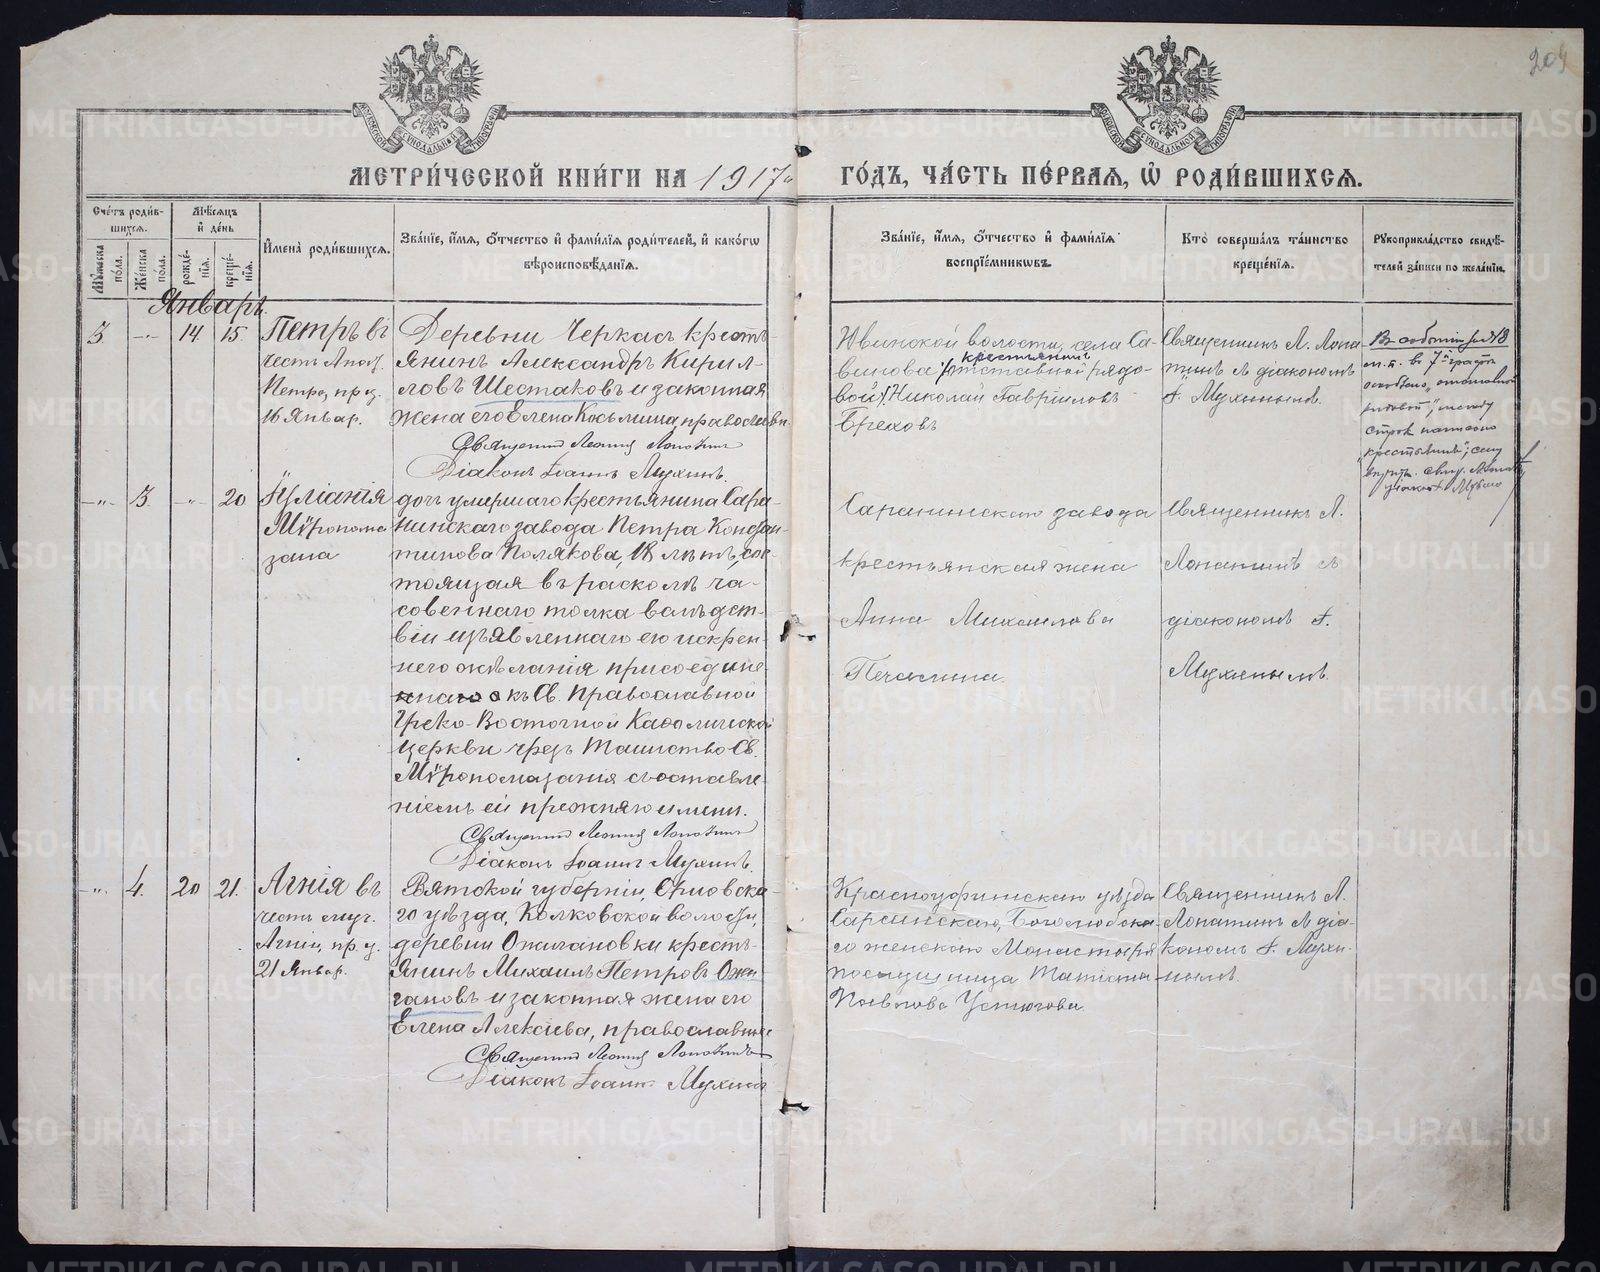 204
МЕТРИ́ЧЕСКОЙ КНИ́ГИ НА 1917 ГО́ДЪ, ЧА́СТЬ ПЕ́РВАЯ, Ѡ҆ РОДИ́ВШИХСЯ.
Сче́тъ роди́в-
шихся.
Мꙋ́жеска по́ла.
Же́нска по́ла.
Мѣ́сяцъ
и҆ де́нь
рожде́-
нїя.
креще́-
нїя.
И҆мена̀ роди́вшихся.
Зва́нїе, и҆́мя, ѻ҆́тчество и҆ фами́лїя роди́телей, и҆ како́гѡ
вѣроисповѣ́данїя.
Зва́нїе, и҆́мя, ѻ҆́тчество и҆ фами́лїя
воспрїе́мникѡвъ.
Кто̀ соверша́лъ та́инство
креще́нїя.
Рꙋкоприкла́дство свидѣ́-
телей за́писи по жела́нїю.
Январь.
3 -"- 14 15.
Петръ въ
честь Апос.
Петра, пр. д.
16 Январ.
Деревни Черкасъ кресть-
янинъ Александръ Кирил-
ловъ Шестаковъ и законная
жена его Елена Косьмина, православн.
Священник Леонид Лопатин
Діаконъ Іоаннъ Мухинъ.
волости, села Са-
винова
крестьянинъ
отставной рядо-
вой) Николай Гавриловъ
Ореховъ
Священникъ Л. Лопа-
тинъ съ діакономъ
І. Мухинымъ.
-"- 3. -"- 20
Іуліанія
Мѵропома-
зана
дочь умершаго крестьянина Сара-
нинскаго завода Петра Констан-
тинова Полякова, 18 лѣтъ, сос-
тоящая въ расколѣ ча-
совеннаго толка вслѣдст-
віи изъявленнаго ею искрен-
него желанія присоедине-
на къ Св. Православной
Греко-Восточной Каѳолической
Церкви чрезъ Таинство Св.
Мѵропомазанія съ оставле-
ніемъ ей прежняго имени.
Священник Леонид Лопатин
Діаконъ Іоаннъ Мухинъ.
Саранинскаго завода
крестьянская жена
Анна Михаилова
Печенина.
Священникъ Л.
Лопатинъ съ
діакономъ І.
Мухинымъ.
-"- 4. 20 21.
Агнія въ
честь муч.
Агніи, пр. д.
21 Январ.
Вятской губерніи, Орловска-
го уѣзда, Колковской волости,
деревни Ожигановки кресть-
янинъ Михаилъ Петровъ Ожи-
гановъ и законная жена его
Елена Алексіева, православные
Священник Леонид Лопатинъ
Діаконъ Іоаннъ Мухинъ
Красноуфимскаго уѣзда
Сарсинскаго, Боголюбска-
го женскаго Монастыря
послушница Татіана
Павлова Устюгова.
Священникъ Л.
Лопатинъ съ діа-
кономъ І. Мухи-
нымъ.
METRIKI.GASO-URAL.RU